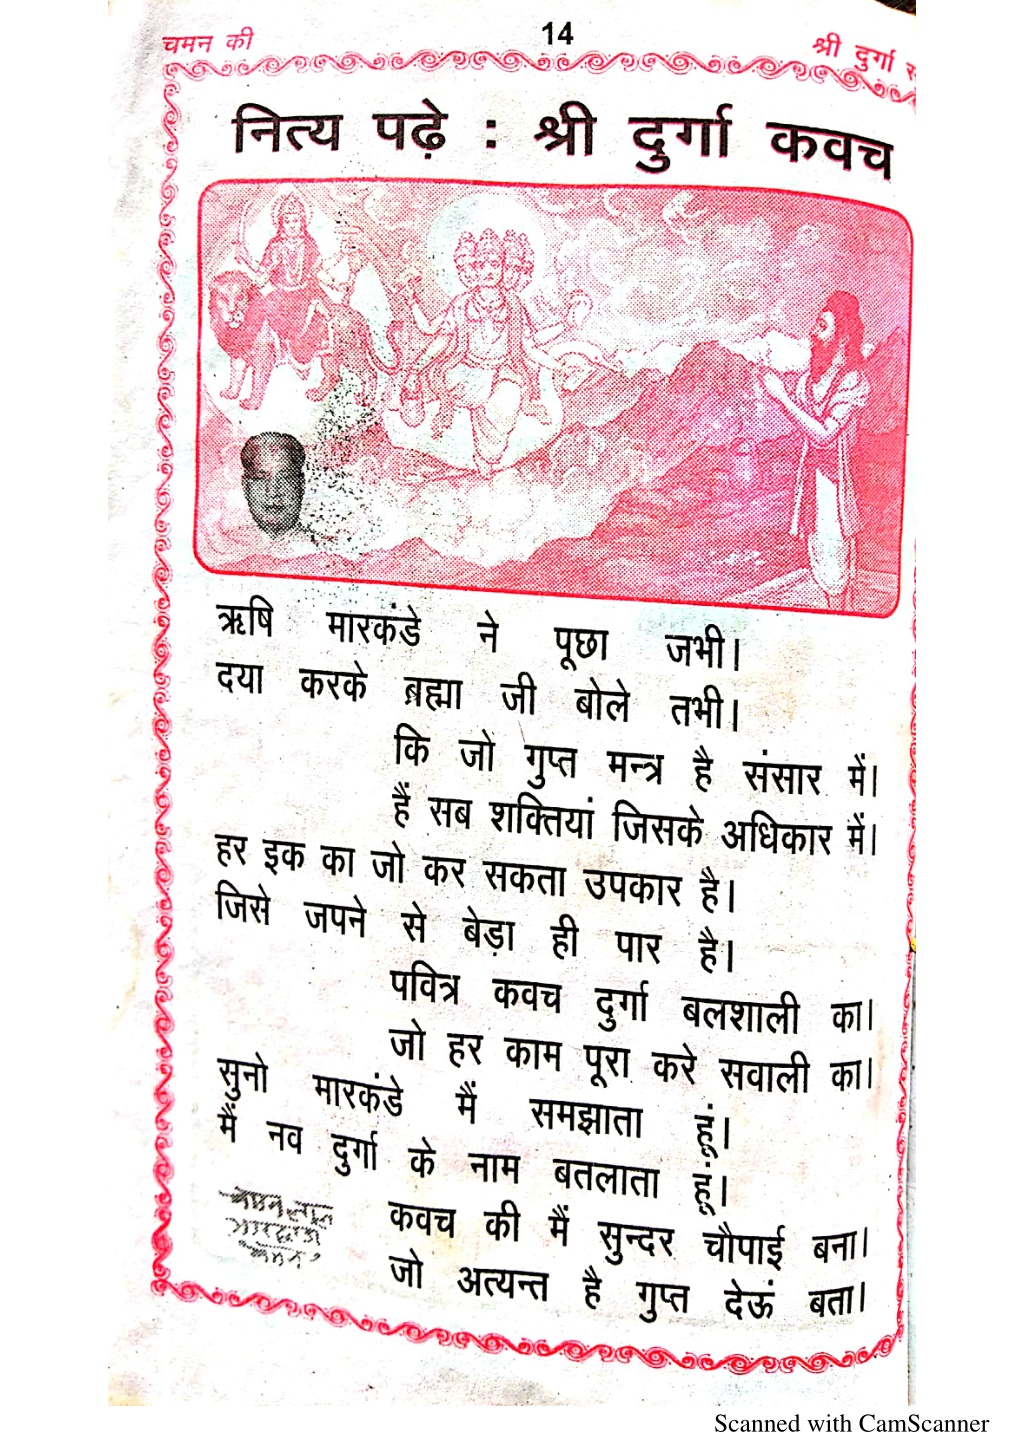 चमन की
14
श्री दुर्गा
नित्य पढ़े : श्री दुर्गा कवच
ऋषि मारकंडे ने पूछा जभी।
दया करके ब्रह्मा जी बोले तभी।
कि जो गुप्त मन्त्र है संसार में।
हैं सब शक्तियां जिसके अधिकार में।
हर इक का जो कर सकता उपकार है।
जिसे जपने से बेड़ा ही पार है।
पवित्र कवच दुर्गा बलशाली का।
जो हर काम पूरा करे सवाली का।
सुनो मारकंडे मैं समझाता हूं।
मैं नव दुर्गा के नाम बतलाता हूं।
कवच की मैं सुन्दर चौपाई बना।
जो अत्यन्त है गुप्त देऊं बता।
चमनलाल
भारद्वाज
"चमन"
Scanned with CamScanner